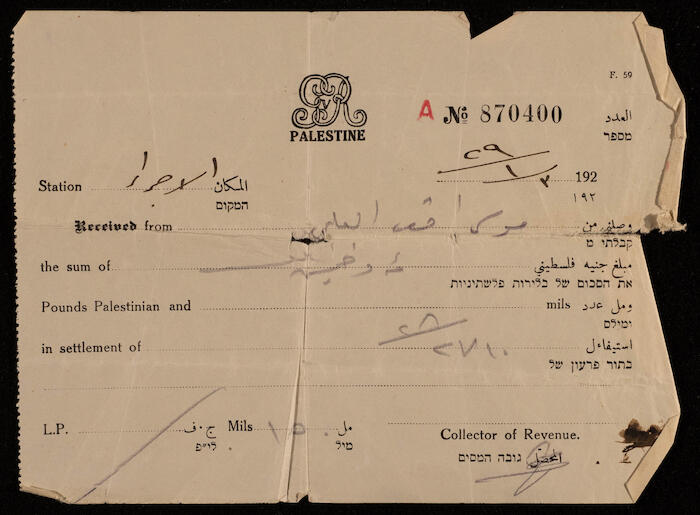 F. 59
GR V
PALESTINE
A № 870400 العدد
מספר
٢٩/١ 192
١٩٢
Station الاجراء المكان
המקום
Received from موسى العلمي وصلني من
קבלתי מ
the sum of مبلغ جنيه فلسطيني
את הסכום של בלירות פלשתיניות
Pounds Palestinian and mils ومل عدد
ומילס
in settlement of استيفاءً ل
בתור פרעון של
L.P. ج.ف Mils ١٥٠ مل
לי״פ מיל
Collector of Revenue.
المحصّل גובה המסים